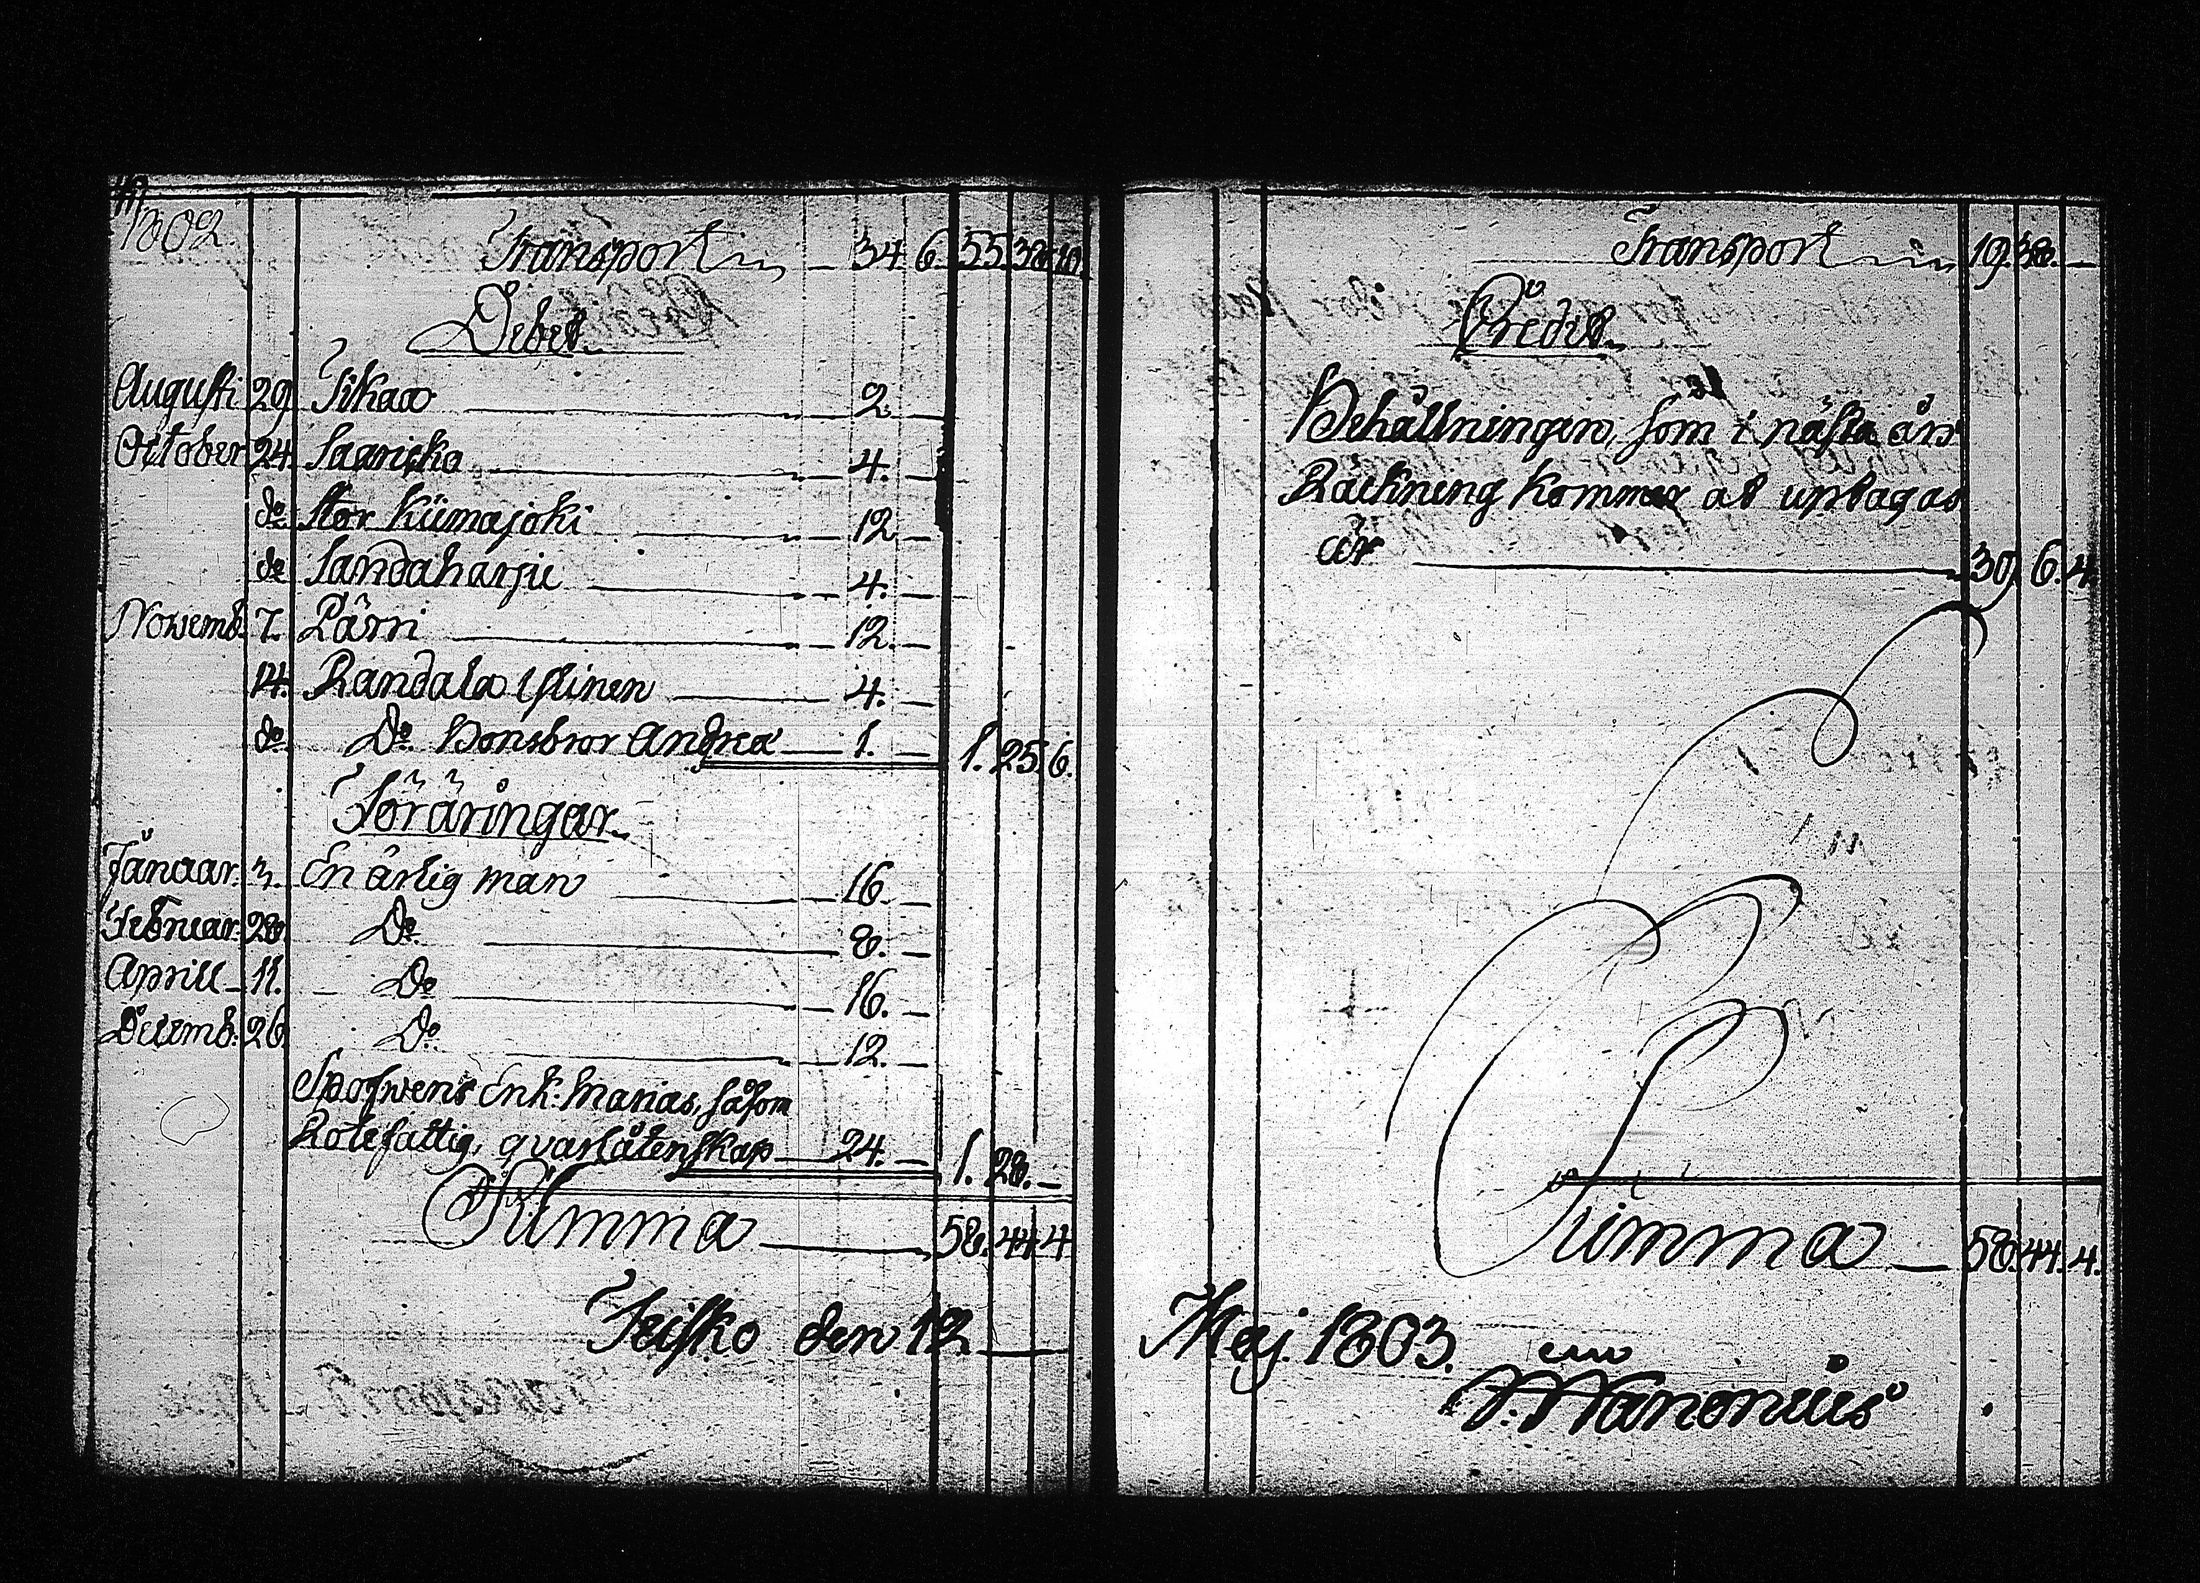 1802
Transport 34. 6. 55. 38. 10.
Debet
Augusti 29 Tikao 2 —
October 24. Saarisko 4. —
do Stor Kiimajoki 12 —
do Sandaharju 4. —
Novemb. 7. Pärri 12. —
14. Randala Ylinen 4. —
do Do Bonsbror Andrea 1. — 1. 25. 6.
Föräringar
Januar. 3. En ärlig man 16. —
Februar. 28. Do 8. —
Aprill 11. Do 16. —
Decemb. 26 Do 12. —
Enk: Marias, såsom
Rotefattig, qvarlåtenskap 24. — 1. 28. —
Summa 58. 44. 4
Teisko den 12
Transport 19. 38. —
Credit
Behållningen, som i nästa års
Räckning kommer at uptagas
är 39. 6. 4.
Summa 58. 44. 4.
Maj. 1803.
Wanonius